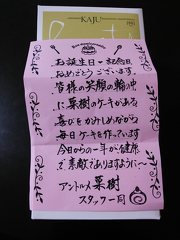 KAJU
お誕生日・記念日
おめでとうございます。
皆様の笑顔の輪の中
に菓樹のケーキがある
喜びをかみしめながら
毎日ケーキを作っています
今日からの一年が健康
で素敵でありますように〜
アントルメ菓樹
スタッフ一同